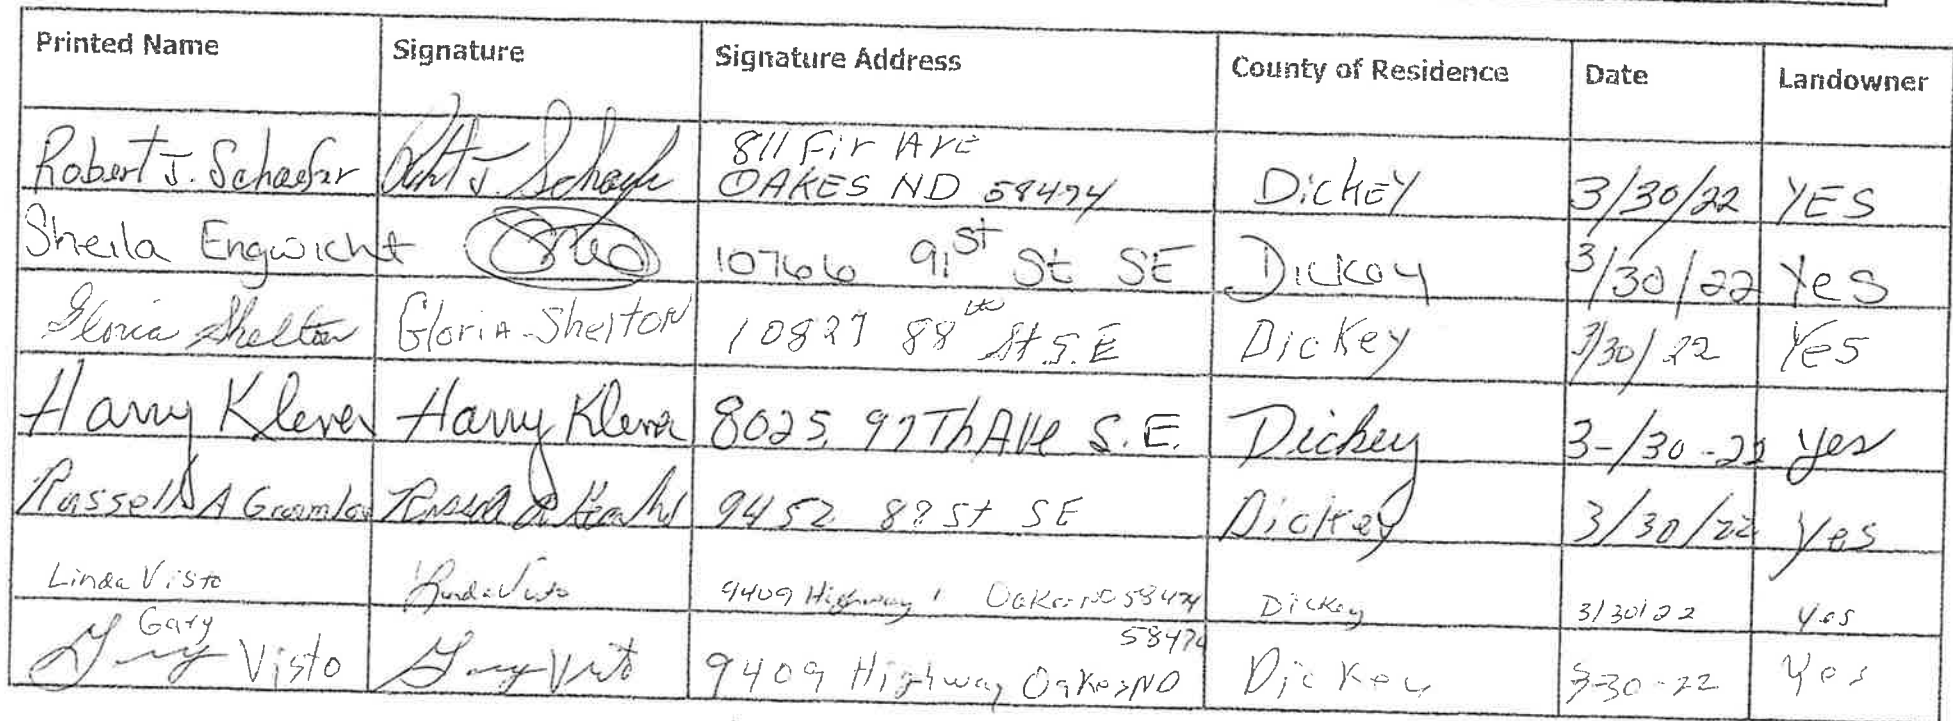 Printed Name Signature Signature Address County of Residence Date Landowner
811 Fir Ave
Robert J. Schaefer J. Schaefer OAKES ND 58474 DicKEY 3/30/22 YES
Sheila Engwicht 10766 91st St SE Dickey 3/30/22 Yes
Gloria Shelton GloriA Shelton 10827 88th St S.E Dickey 3/30/22 Yes
Harry Klever Harry Klever 8025 97Th Ave S.E. Dickey 3-/30-22 yes
Russell A 9452 82 St SE Dickey 3/30/22 Yes
Linda Visto Linda Visto 9409 Highway 1 Oakes ND 58474 Dickey 3/30/22 yes
Gary 58474
Visto Gary Visto 9409 Highway Oakes ND Dickey 3-30-22 Yes